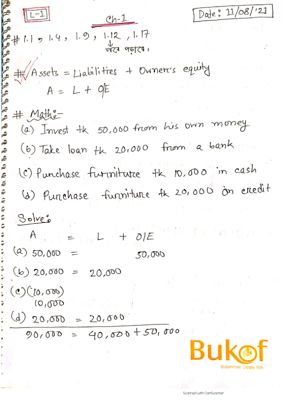 L-1
Ch-1
Date: 11/08/'21
# 1.1, 1.4, 1.9, 1.12, 1.17
# Assets = Liabilities + Owner's equity
A = L + O/E
# Math:-
(a) Invest tk 50,000 from his own money
(b) Take loan tk 20,000 from a bank
(c) Purchase furniture tk 10,000 in cash
(d) Purchase furniture tk 20,000 on credit
Solve:
A = L + O/E
(a) 50,000 = 50,000
(b) 20,000 = 20,000
(c) (10,000)
10,000
(d) 20,000 = 20,000
90,000 = 40,000 + 50,000
Bukof
Scanned with CamScanner